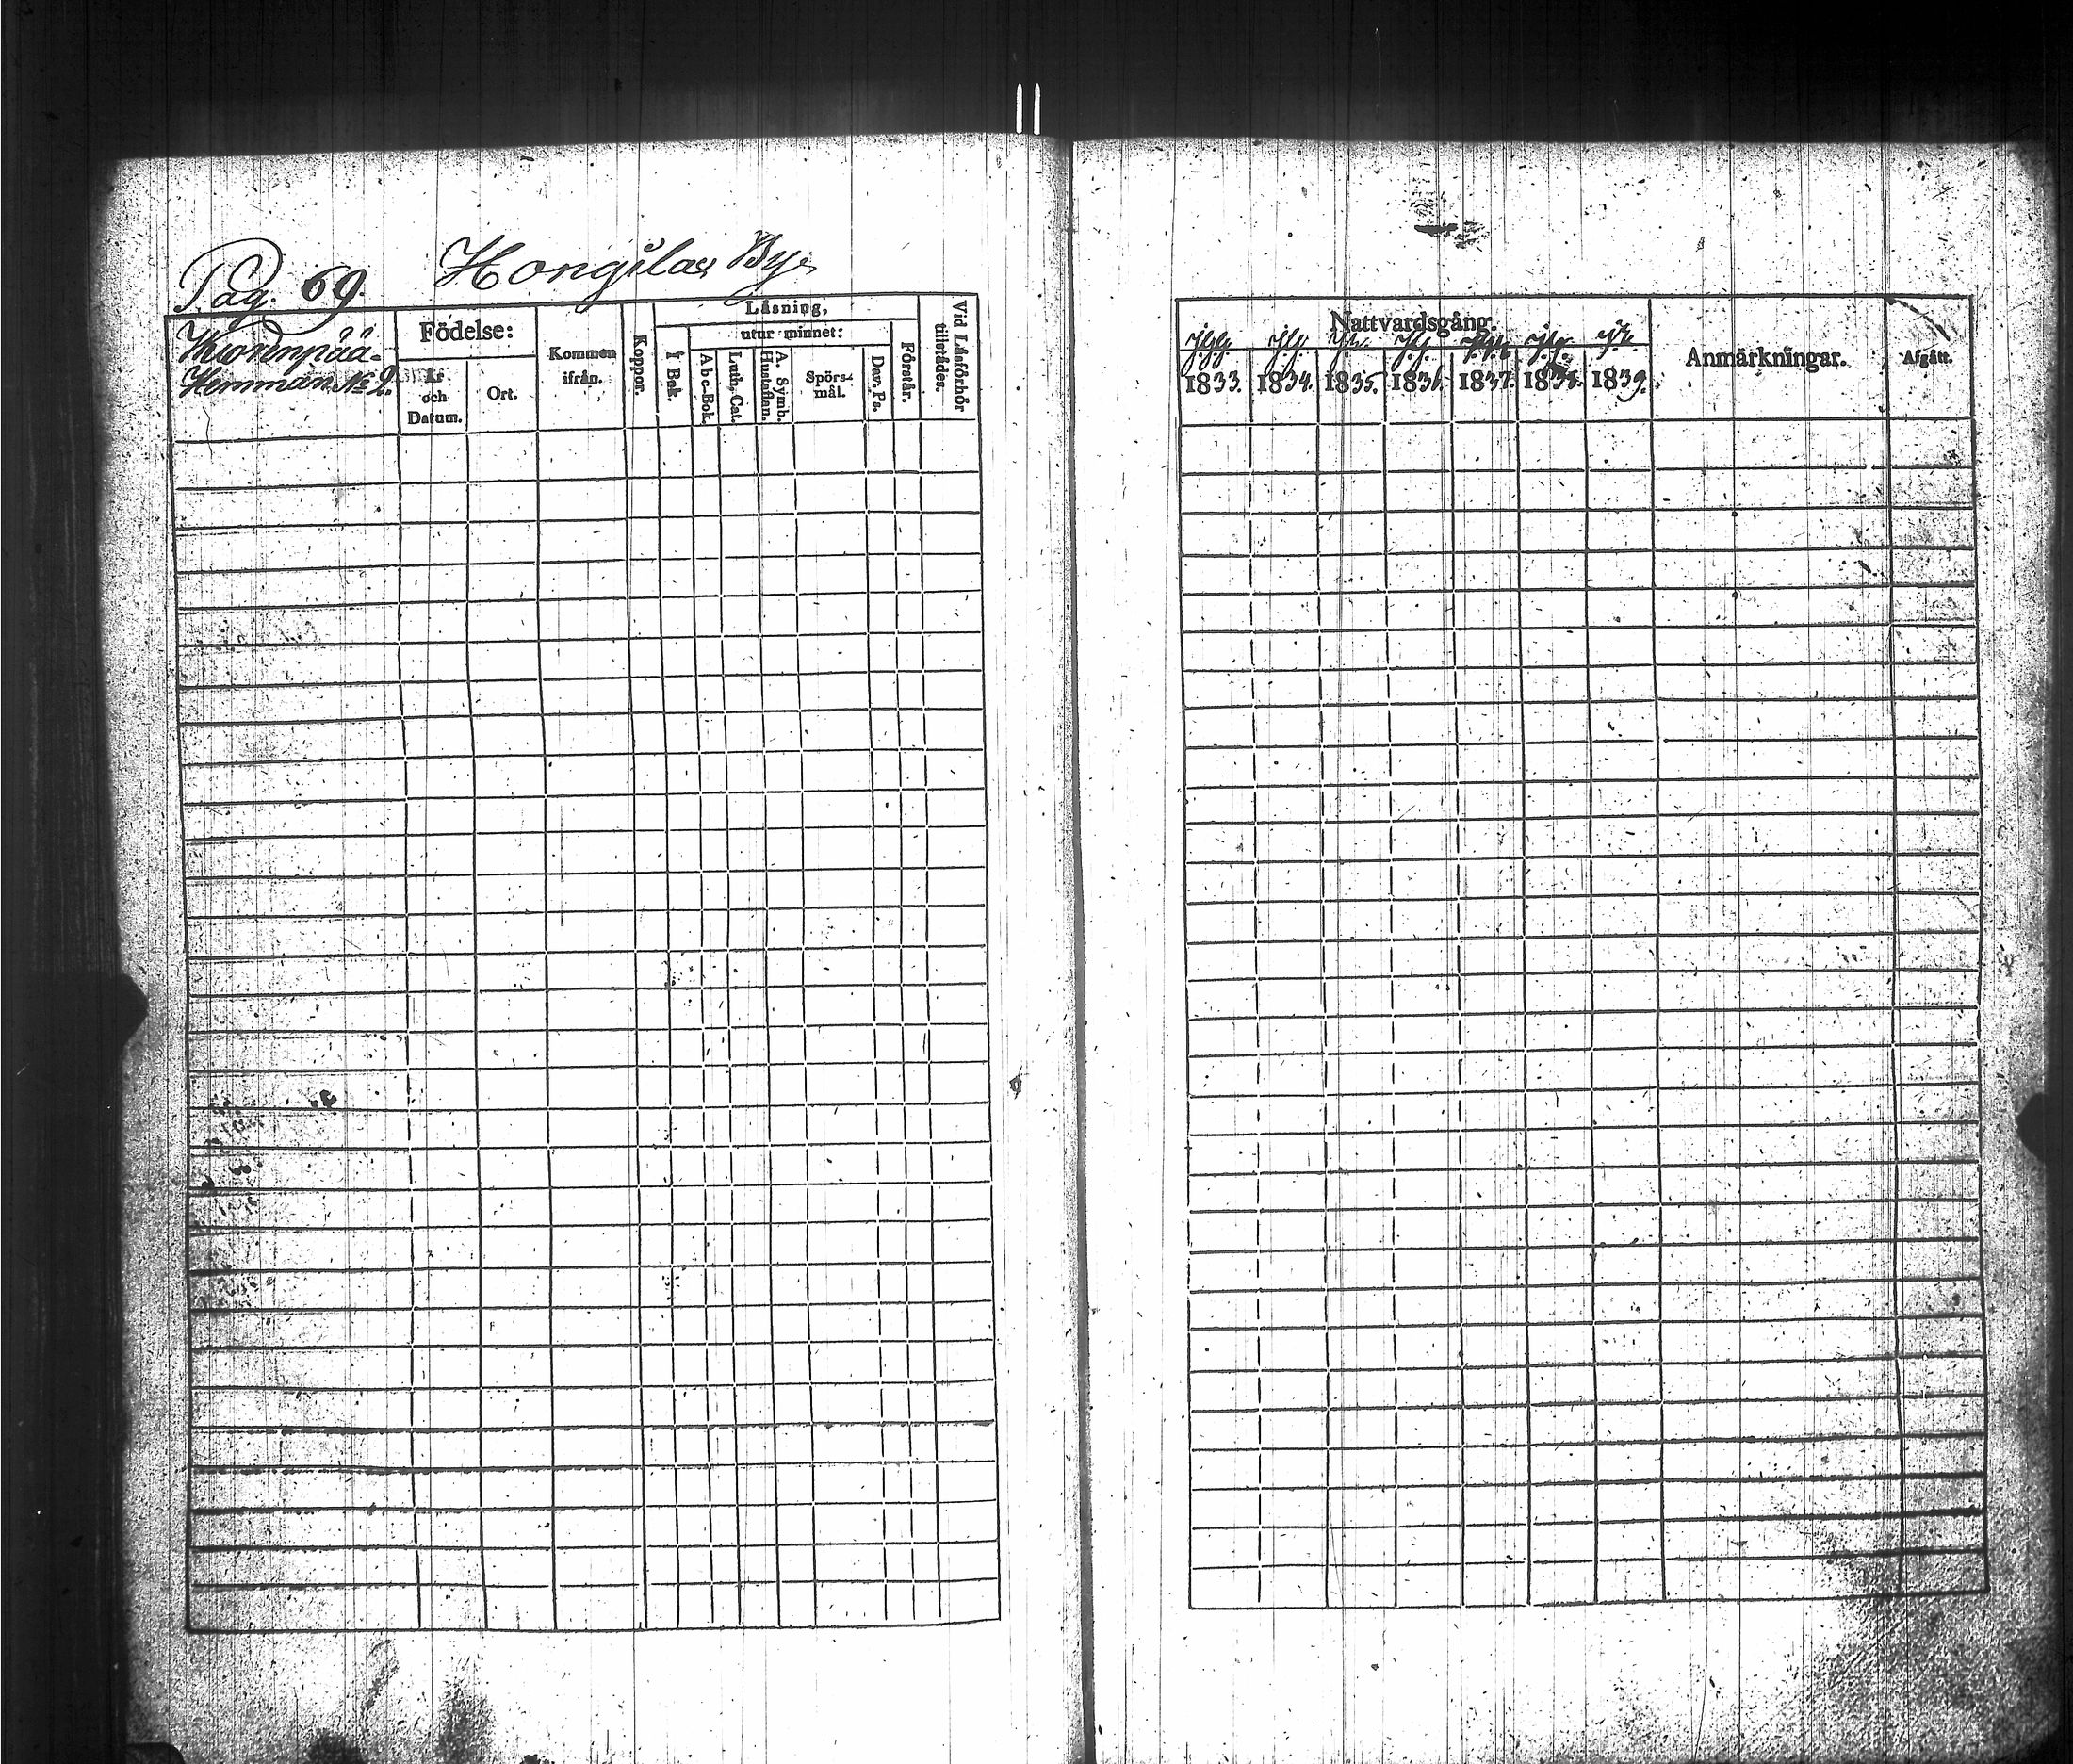 Pag. 69. Hongila By.
Hemman No 2.
Födelse:
År och Datum.
Ort.
Kommen ifrån.
Koppor.
Läsning,
utur minnet:
I Bok.
Abc-Bok.
Luth. Cat.
A. Symb. Hustaflan.
Spörs-mål.
Dav. Ps.
Förstår.
Vid Läsförhör tillstädes.
Nattvardsgång.
1833. 1834. 1835. 1836. 1837. 1838. 1839.
Anmärkningar.
Afgått.